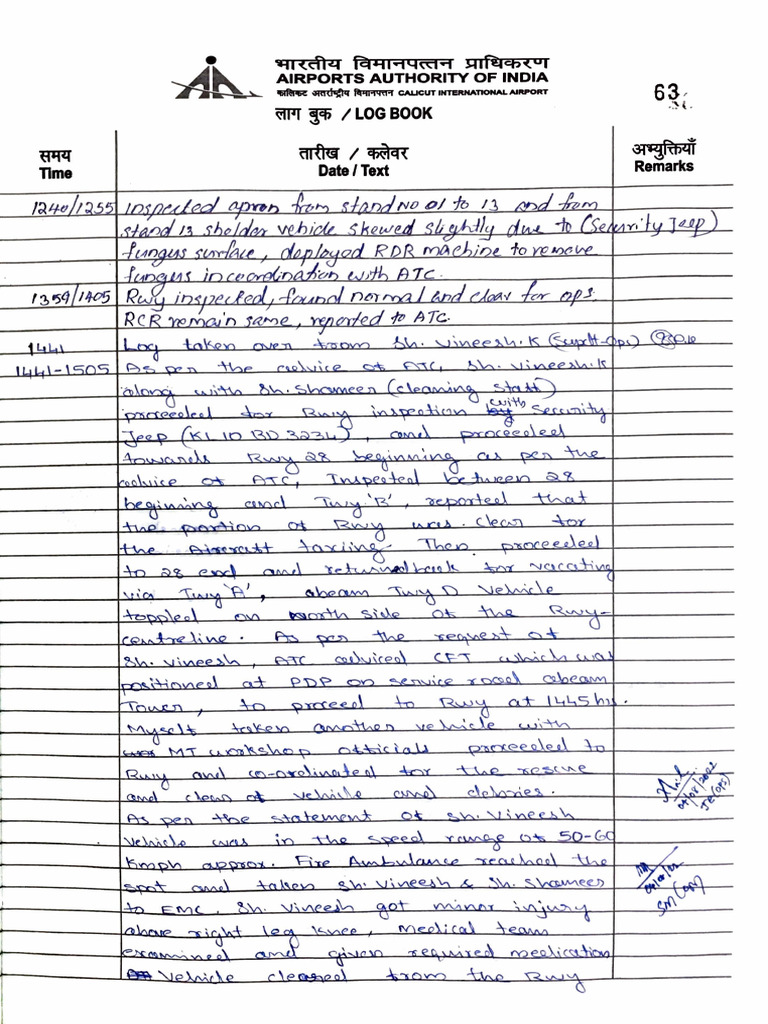 भारतीय विमानपत्तन प्राधिकरण
AIRPORTS AUTHORITY OF INDIA
कालिकट अंतर्राष्ट्रीय विमानपत्तन CALICUT INTERNATIONAL AIRPORT
63
लाग बुक / LOG BOOK
समय
Time
तारीख / कलेवर
Date / Text
अभ्युक्तियाँ
Remarks
1240/1255 Inspected apron from stand NO 01 to 13 and from
stand 13 sholder vehicle skewed slightly due to (Security Jeep)
fungus surface, deployed RDR machine to remove
fungus in coordination with ATC.
1359/1405 Rwy inspected, found normal and clear for ops
RCR remain same, reported to ATC.
1441 Log taken over from Sh. Vineesh.K (Suprtt-Ops)
1441-1505 As per the advice of ATC, Sh. Vineesh.K
along with Sh. Shameer (cleaning staff)
proceeded for Rwy inspection with Security
Jeep (KL10 BD 3234), and proceeded
towards Rwy 28 beginning as per the
advice of ATC, Inspected between 28
beginning and Twy 'B', reported that
the portion of Rwy was clear for
the Aircraft taxiing. Then proceeded
to 28 end and returned back for vacating
via Twy 'A', abeam Twy D Vehicle
toppled on north side of the Rwy-
centreline. As per the request of
Sh. Vineesh, ATC adviced CFT which was
positioned at PDP on service road abeam
Tower, to proceed to Rwy at 1445 hrs.
Myself taken another vehicle with
MT workshop officials proceeded to
Rwy and co-ordinated for the rescue
and clear of vehicle and debries.
As per the statement of Sh. Vineesh
Vehicle was in the speed range of 50-60
kmph approx. Fire Ambulance reached the
spot and taken Sh. Vineesh & Sh. Shameer
to EMC. Sh. Vineesh got minor injury
above right leg knee, medical team
examined and given required medication
Vehicle cleared from the Rwy
04/08/2022
JE(OPS)
SM(OPS)